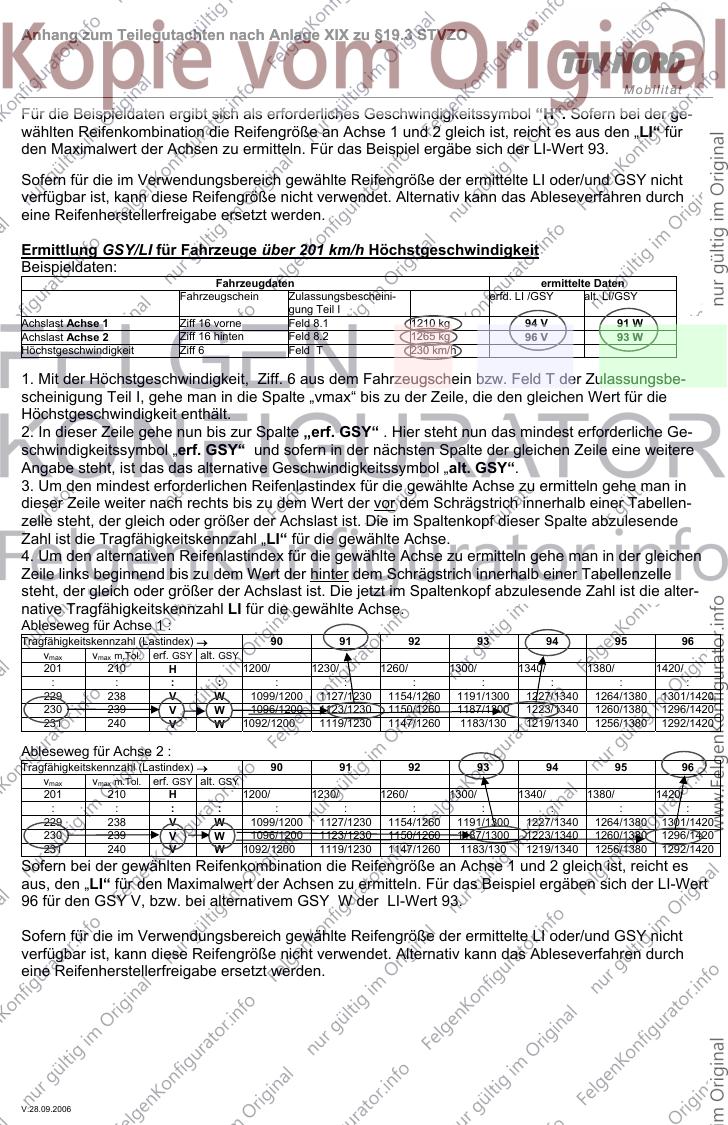 Anhang zum Teilegutachten nach Anlage XIX zu §19.3 STVZO
Kopie vom Original
TÜV NORD
Mobilität
Für die Beispieldaten ergibt sich als erforderliches Geschwindigkeitssymbol “H“. Sofern bei der ge-
wählten Reifenkombination die Reifengröße an Achse 1 und 2 gleich ist, reicht es aus den „LI“ für
den Maximalwert der Achsen zu ermitteln. Für das Beispiel ergäbe sich der LI-Wert 93.
Sofern für die im Verwendungsbereich gewählte Reifengröße der ermittelte LI oder/und GSY nicht
verfügbar ist, kann diese Reifengröße nicht verwendet. Alternativ kann das Ableseverfahren durch
eine Reifenherstellerfreigabe ersetzt werden.
Ermittlung GSY/LI für Fahrzeuge über 201 km/h Höchstgeschwindigkeit
Beispieldaten:
Fahrzeugdaten ermittelte Daten
Fahrzeugschein Zulassungsbescheini- erfd. LI /GSY alt. LI/GSY
gung Teil I
Achslast Achse 1 Ziff 16 vorne Feld 8.1 1210 kg 94 V 91 W
Achslast Achse 2 Ziff 16 hinten Feld 8.2 1265 kg 96 V 93 W
Höchstgeschwindigkeit Ziff 6 Feld T 230 km/h
1. Mit der Höchstgeschwindigkeit, Ziff. 6 aus dem Fahrzeugschein bzw. Feld T der Zulassungsbe-
scheinigung Teil I, gehe man in die Spalte „vmax“ bis zu der Zeile, die den gleichen Wert für die
Höchstgeschwindigkeit enthält.
2. In dieser Zeile gehe nun bis zur Spalte „erf. GSY“ . Hier steht nun das mindest erforderliche Ge-
schwindigkeitssymbol „erf. GSY“ und sofern in der nächsten Spalte der gleichen Zeile eine weitere
Angabe steht, ist das das alternative Geschwindigkeitssymbol „alt. GSY“.
3. Um den mindest erforderlichen Reifenlastindex für die gewählte Achse zu ermitteln gehe man in
dieser Zeile weiter nach rechts bis zu dem Wert der vor dem Schrägstrich innerhalb einer Tabellen-
zelle steht, der gleich oder größer der Achslast ist. Die im Spaltenkopf dieser Spalte abzulesende
Zahl ist die Tragfähigkeitskennzahl „LI“ für die gewählte Achse.
4. Um den alternativen Reifenlastindex für die gewählte Achse zu ermitteln gehe man in der gleichen
Zeile links beginnend bis zu dem Wert der hinter dem Schrägstrich innerhalb einer Tabellenzelle
steht, der gleich oder größer der Achslast ist. Die jetzt im Spaltenkopf abzulesende Zahl ist die alter-
native Tragfähigkeitskennzahl LI für die gewählte Achse.
Ableseweg für Achse 1 :
Tragfähigkeitskennzahl (Lastindex) → 90 91 92 93 94 95 96
vmax vmax m.Tol. erf. GSY alt. GSY
201 210 H 1200/ 1230/ 1260/ 1300/ 1340/ 1380/ 1420/
: : : : : : : : : : :
229 238 V W 1099/1200 1127/1230 1154/1260 1191/1300 1227/1340 1264/1380 1301/1420
230 239 V W 1096/1200 1123/1230 1150/1260 1187/1300 1223/1340 1260/1380 1296/1420
231 240 V W 1092/1200 1119/1230 1147/1260 1183/130 1219/1340 1256/1380 1292/1420
Ableseweg für Achse 2 :
Tragfähigkeitskennzahl (Lastindex) → 90 91 92 93 94 95 96
vmax vmax m.Tol. erf. GSY alt. GSY
201 210 H 1200/ 1230/ 1260/ 1300/ 1340/ 1380/ 1420/
: : : : : : : : : : :
229 238 V W 1099/1200 1127/1230 1154/1260 1191/1300 1227/1340 1264/1380 1301/1420
230 239 V W 1096/1200 1123/1230 1150/1260 1187/1300 1223/1340 1260/1380 1296/1420
231 240 V W 1092/1200 1119/1230 1147/1260 1183/130 1219/1340 1256/1380 1292/1420
Sofern bei der gewählten Reifenkombination die Reifengröße an Achse 1 und 2 gleich ist, reicht es
aus, den „LI“ für den Maximalwert der Achsen zu ermitteln. Für das Beispiel ergäben sich der LI-Wert
96 für den GSY V, bzw. bei alternativem GSY W der LI-Wert 93.
Sofern für die im Verwendungsbereich gewählte Reifengröße der ermittelte LI oder/und GSY nicht
verfügbar ist, kann diese Reifengröße nicht verwendet. Alternativ kann das Ableseverfahren durch
eine Reifenherstellerfreigabe ersetzt werden.
V:28.09.2006
FELGEN
KONFIGURATOR
FelgenKonfigurator.info
nur gültig im Original
www.FelgenKonfigurator.info